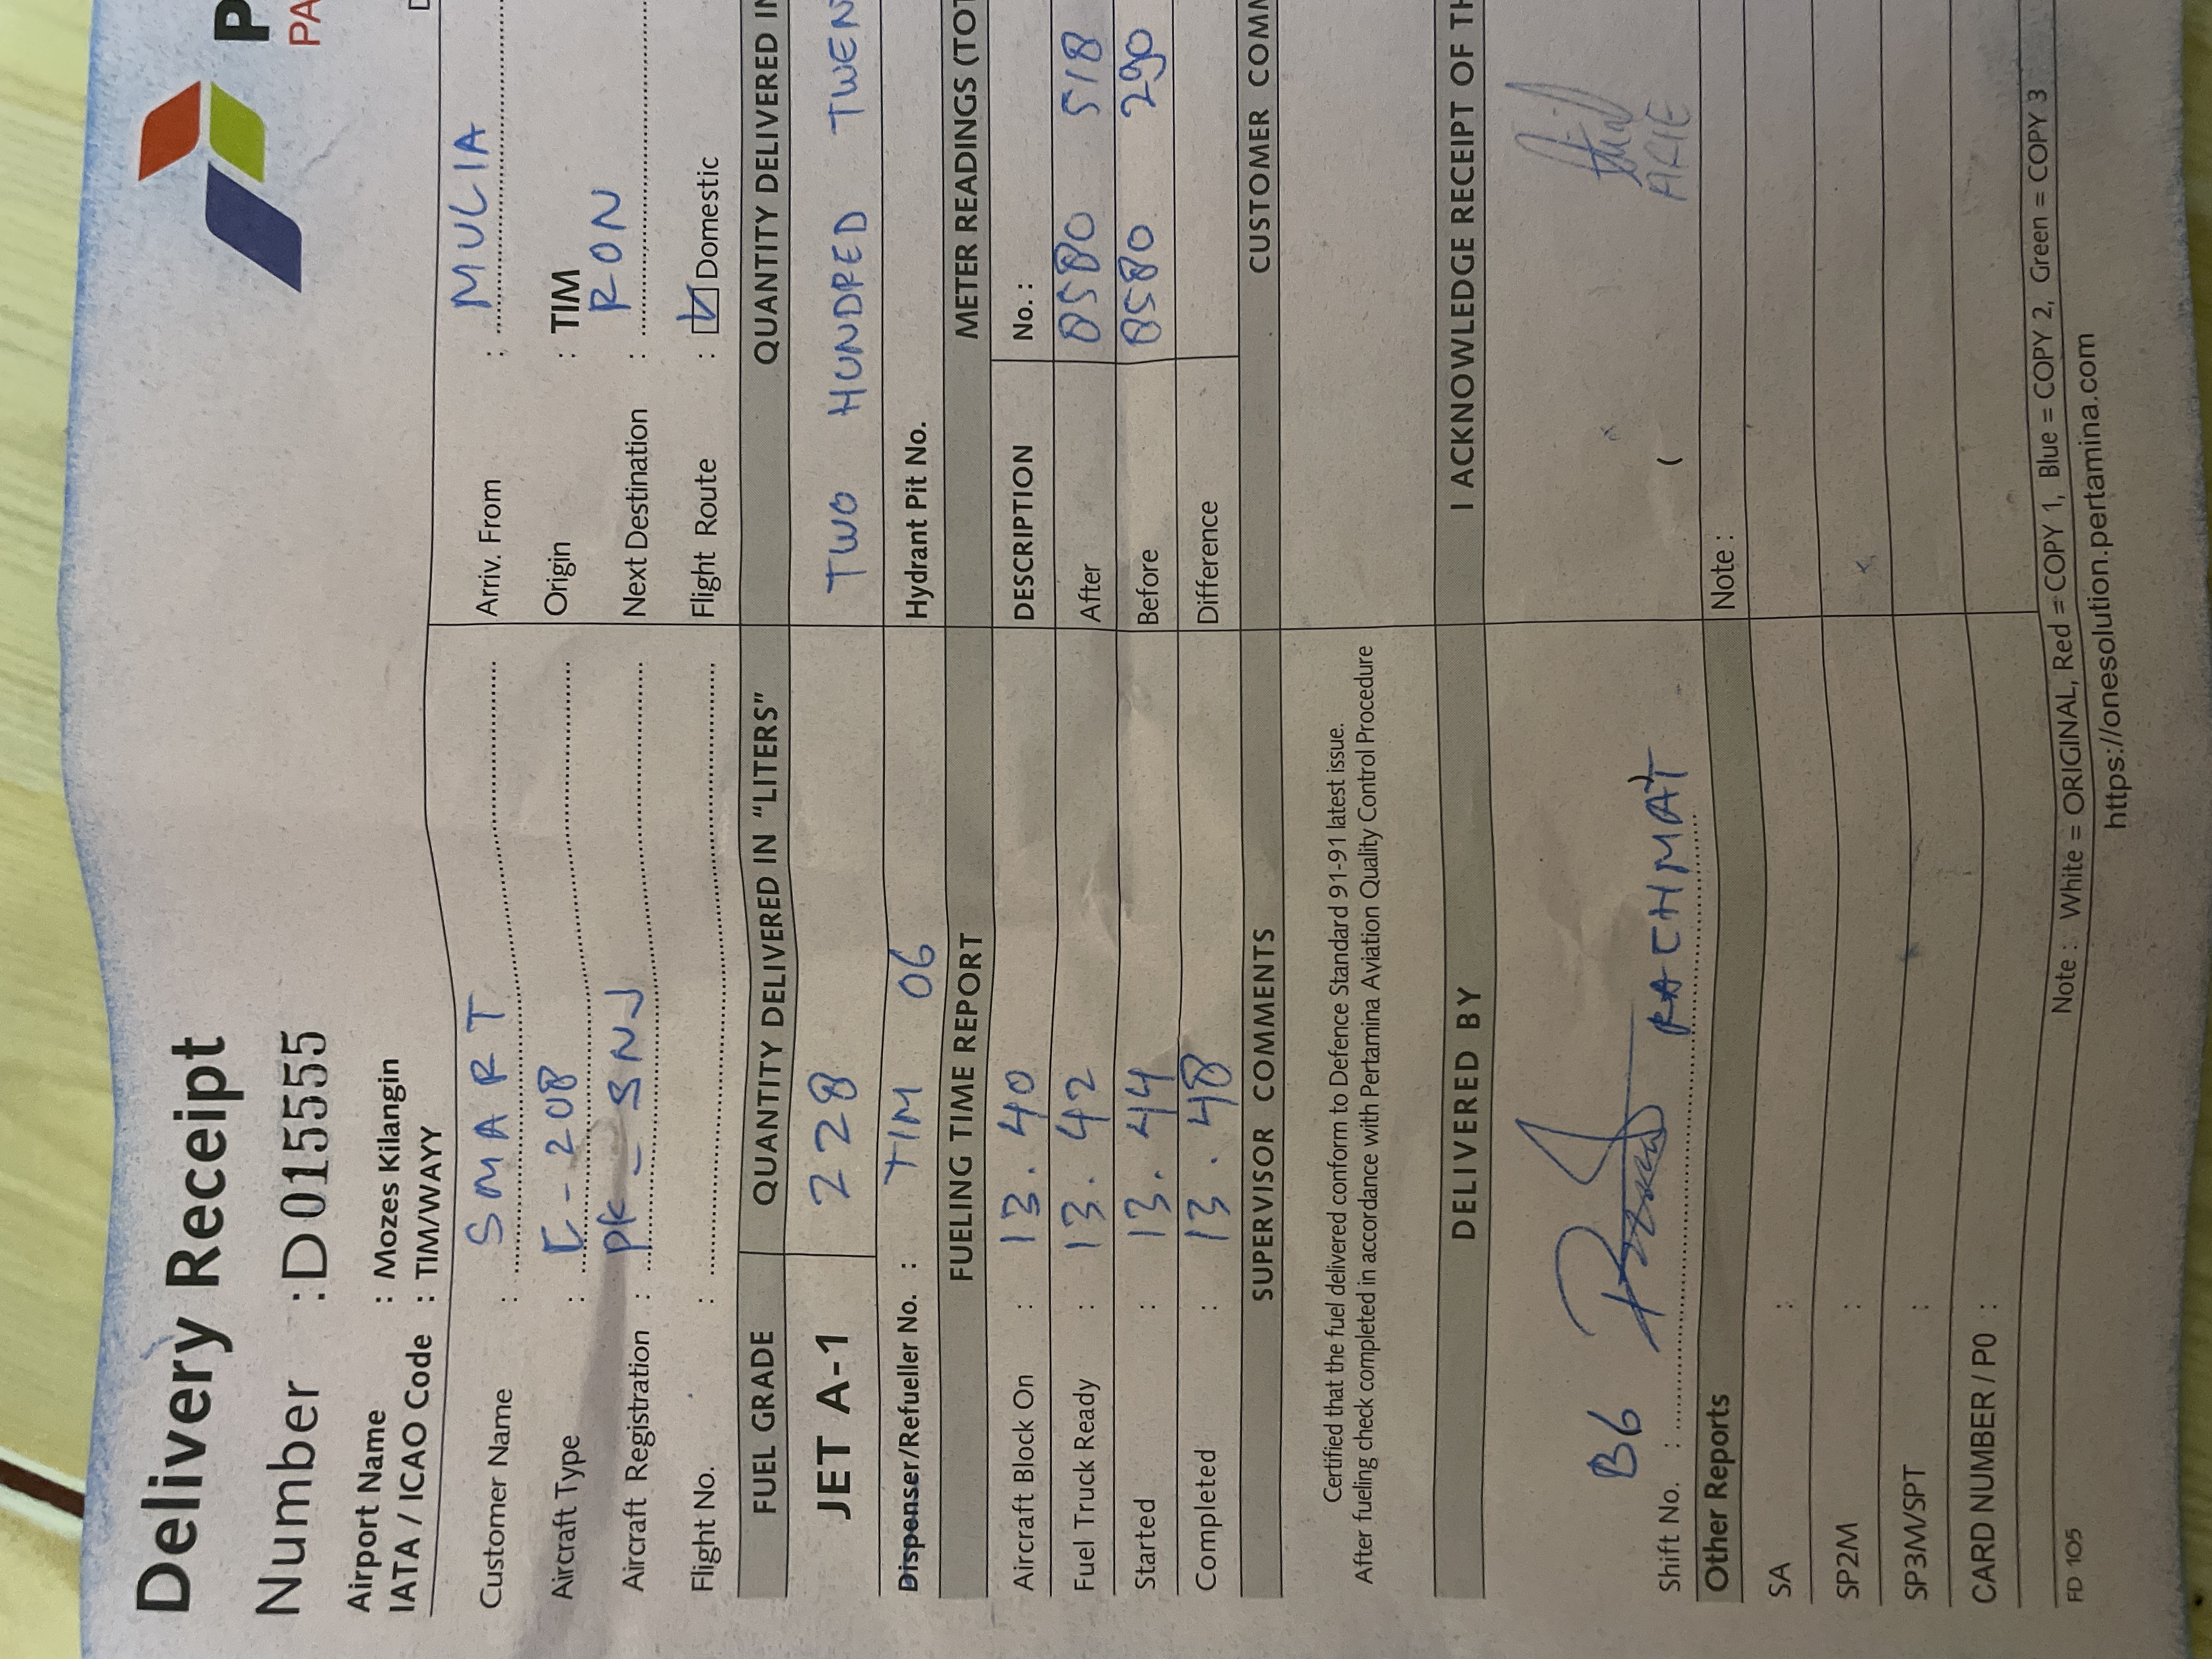 Delivery Receipt
P
PA
Number : D015555
D
Airport Name : Mozes Kilangin
IATA / ICAO Code : TIM/WAYY
Customer Name : SMART
Arriv. From : MULIA
Aircraft Type : C-208
Origin : TIM
Aircraft Registration : PK - SNJ
Next Destination : RON
Flight No. :
Flight Route : Domestic
FUEL GRADE QUANTITY DELIVERED IN "LITERS" QUANTITY DELIVERED IN
JET A-1 228 TWO HUNDRED TWEN
Dispenser/Refueller No. : TIM 06 Hydrant Pit No.
FUELING TIME REPORT METER READINGS (TOT
Aircraft Block On : 13.40 DESCRIPTION No. :
Fuel Truck Ready : 13.42 After 0580 518
Started : 13.44 Before 0580 290
Completed : 13.48 Difference
SUPERVISOR COMMENTS CUSTOMER COMM
Certified that the fuel delivered conform to Defence Standard 91-91 latest issue.
After fueling check completed in accordance with Pertamina Aviation Quality Control Procedure
DELIVERED BY I ACKNOWLEDGE RECEIPT OF TH
Shift No. : B6 RACHMAT ( ARIE
Other Reports Note :
SA :
SP2M :
SP3M/SPT :
CARD NUMBER / P0 :
Note : White = ORIGINAL, Red = COPY 1, Blue = COPY 2, Green = COPY 3
FD 105
https://onesolution.pertamina.com